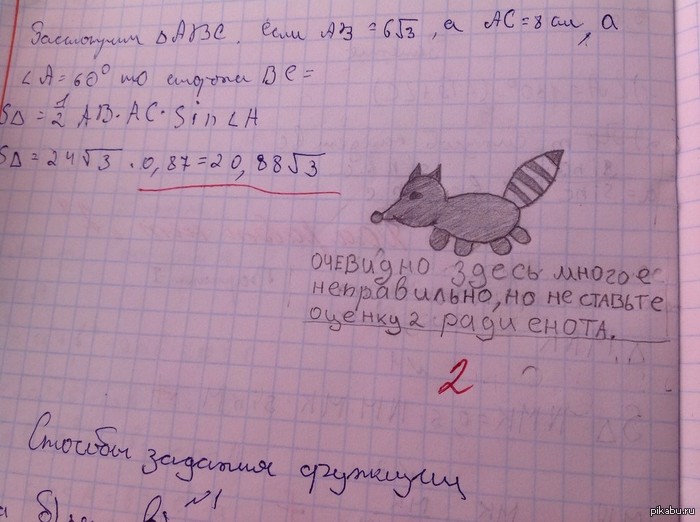 △ABC. Если AB = 6√3, а AC = 8 см, а
∠A = 60° то стороны BC =
S△ = 1/2 AB · AC · Sin ∠A
S△ = 24√3 · 0,87 = 20,88√3
ОЧЕВИДНО ЗДЕСЬ МНОГОЕ
неправильно, но не ставьте
оценку 2 ради енота.
2
Способы задания функции
б)
№1
pikabu.ru